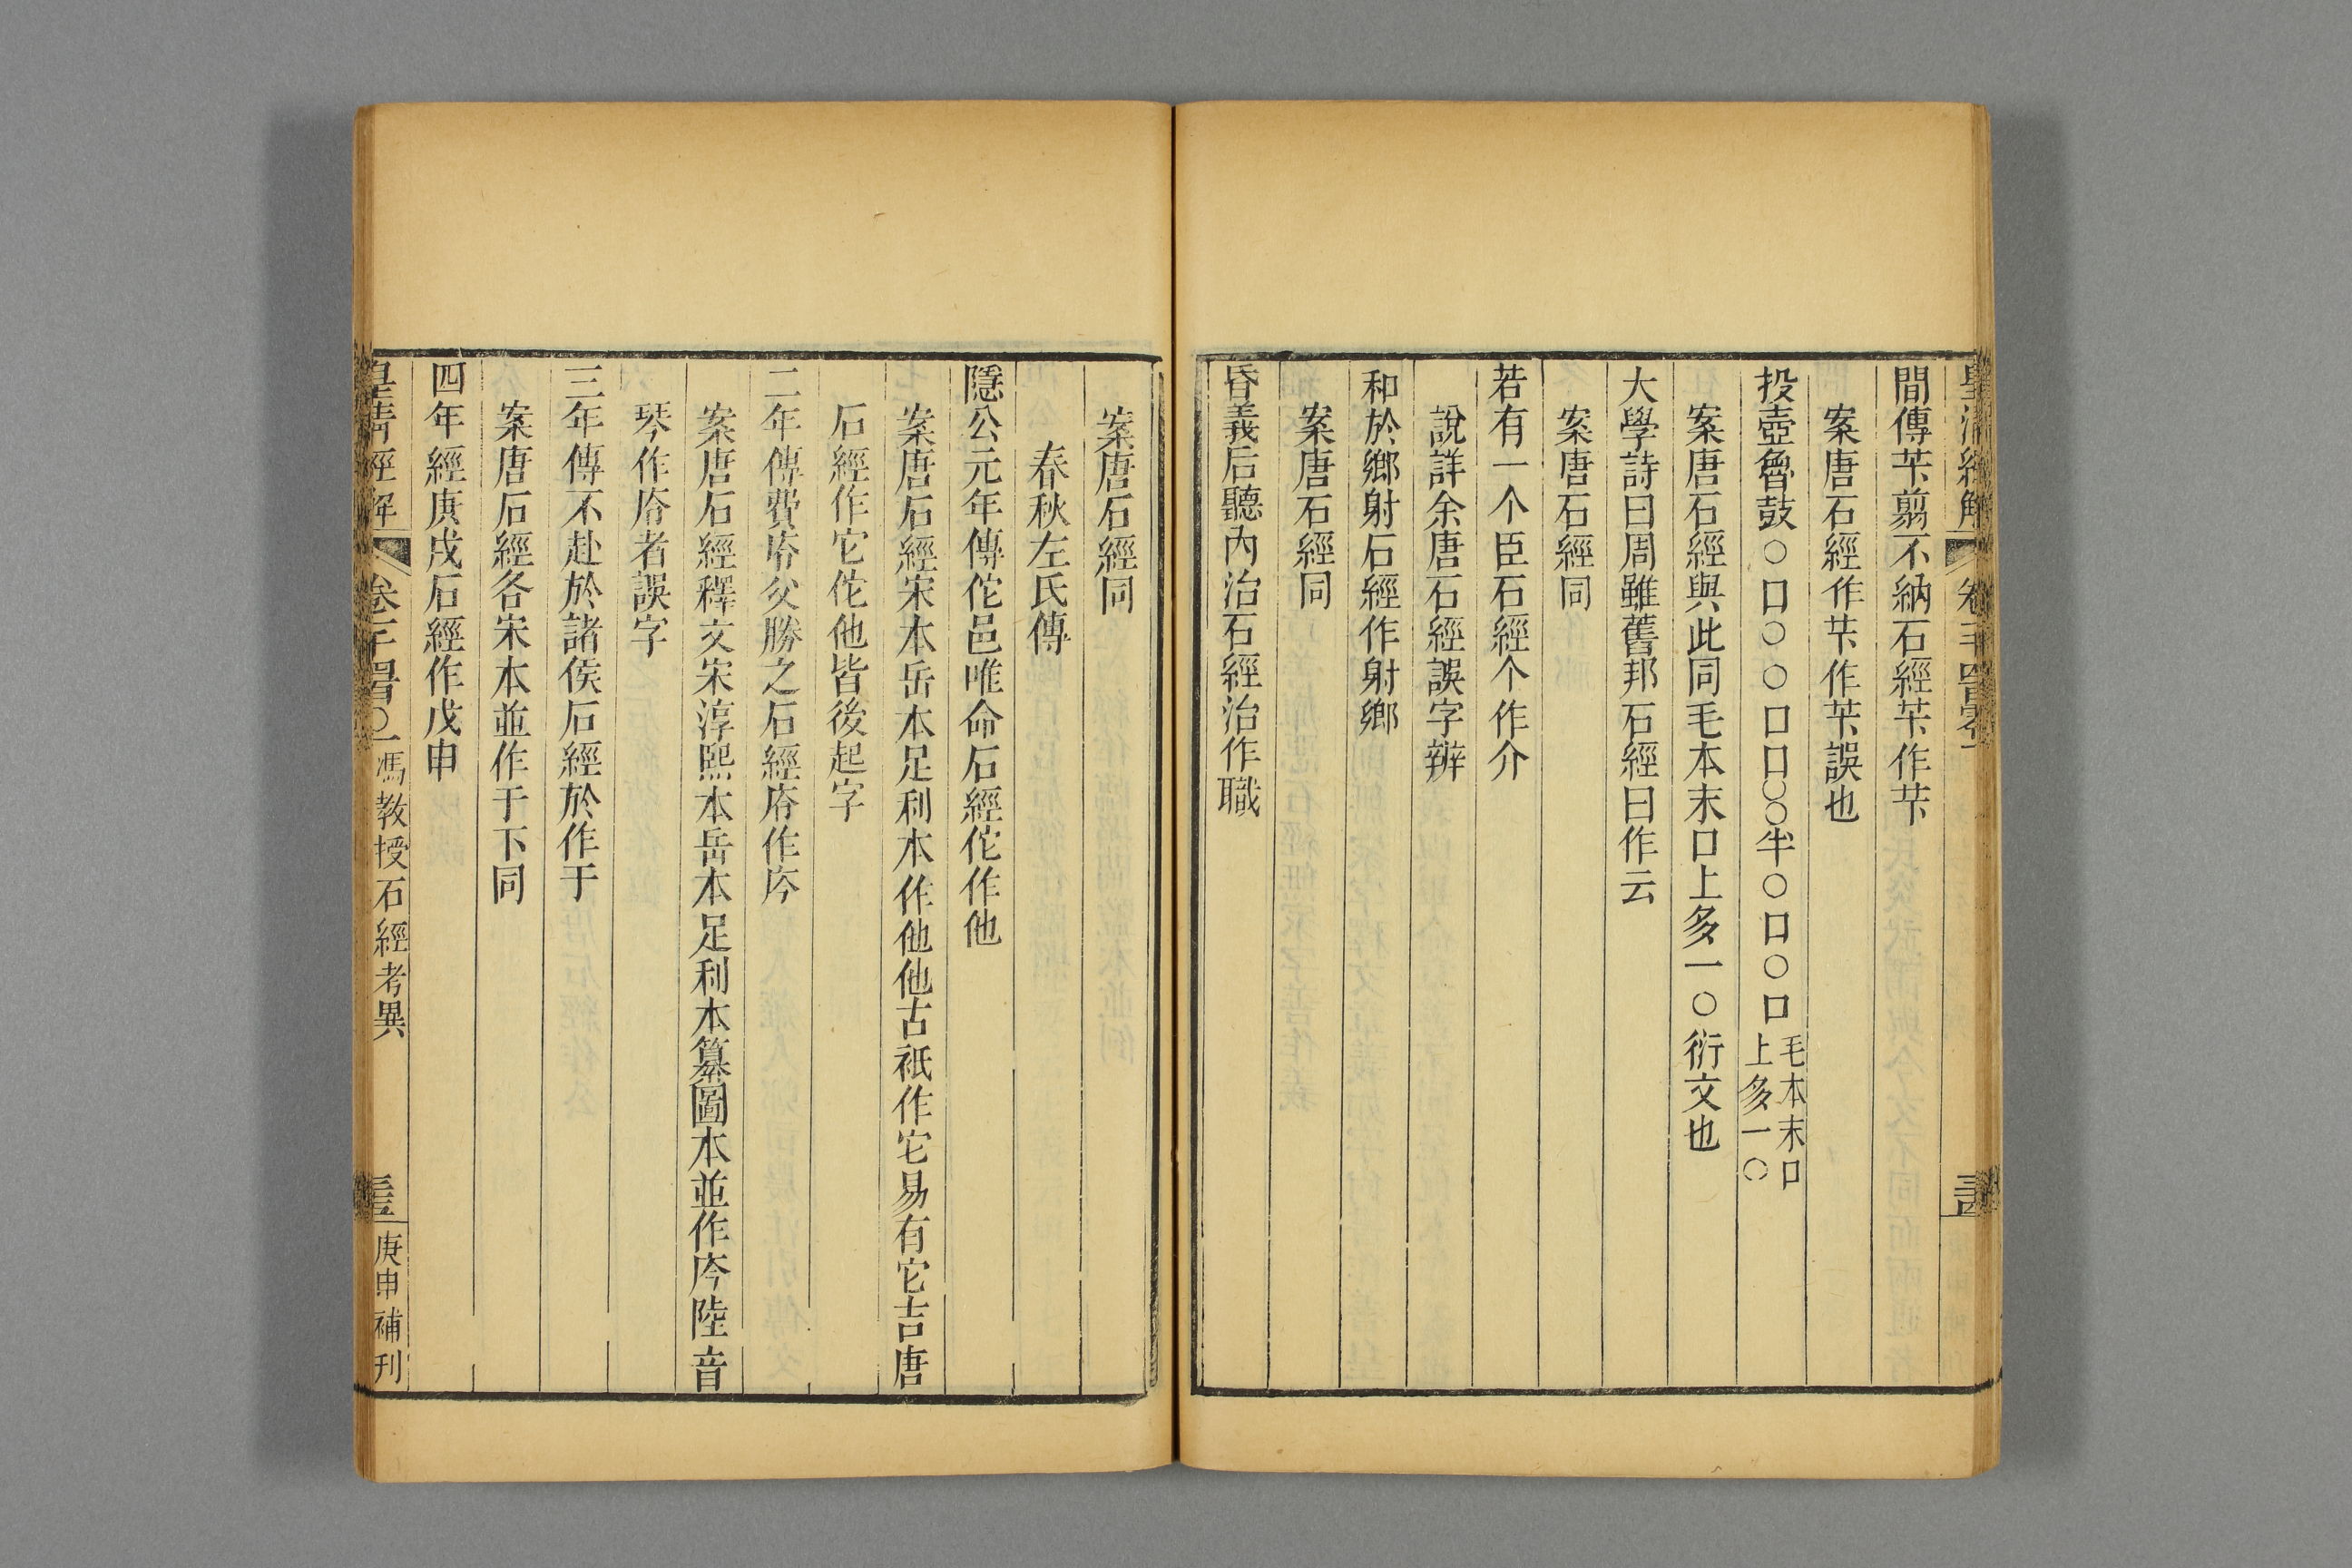 皇清經解 卷一千四百零一
間傳苄翦不納石經苄作芐
案唐石經作芐作苄誤也
投壺魯鼓○口○○口口○○半○口○口毛本末口上多一○
案唐石經與此同毛本末口上多一○衍文也
大學詩曰周雖舊邦石經曰作云
案唐石經同
若有一个臣石經个作介
說詳余唐石經誤字辨
和於鄉射石經作射鄉
案唐石經同
昏義后聽內治石經治作職
案唐石經同
春秋左氏傳
隱公元年傳佗邑唯命石經佗作他
案唐石經宋本岳本足利本作他他古衹作它易有它吉唐
石經作它佗他皆後起字
二年傳費庈父勝之石經庈作庈
案唐石經釋文宋淳熙本岳本足利本纂圖本並作庈陸音
琴作㡴者誤字
三年傳不赴於諸侯石經於作于
案唐石經各宋本並作于下同
四年經庚戌石經作戊申
皇清經解 卷一千四百○一馮教授石經考異 庚申補刊